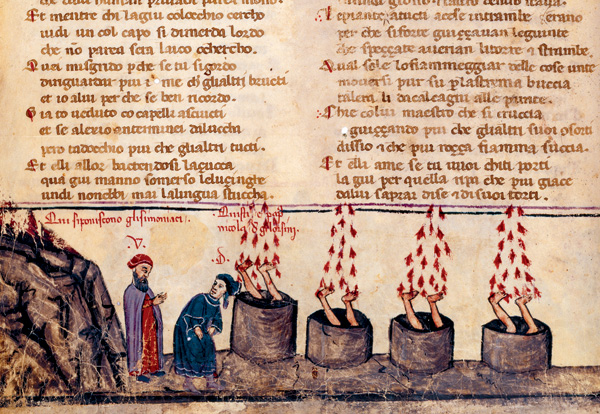 Et mentre chi lagiu colocchio cercho
uidi un col capo si dimerda lordo
che no parea sera laico ocherco.
Quei misgrido p che se tu si gordo
dinguardar piu i me ch glialtri bructi
et io alui per che se ben ricordo.
Gia to ueduto co capelli asciucti
et se alexio anterminei dalucchi
pero tadocchio piu che glialtri tucti.
Et elli allor bactendosi lacucca
qua giu manno somerso lelusinghe
undi nonebbi mai lalingua stuccha
accese intrambe
per che siforte guiççauan legiunte
che speççate auerian litorte & strambe.
Qual sole lofiammeggiar delle cose unte
mouersi pur su plastrema buccia
taleni li dacalcagni alle punte.
Chie colui maestro che si cruccia
guiççando piu che glialtri suoi osorti
dissio & che piu roçça fiamma succia.
Et elli ame se tu uuoi chiti porti
la giu per quella ripa che piu giace
dalui saprai dise & disuoi torti.
Qui siponiscono glisimoniaci.
nicola
V.
D.